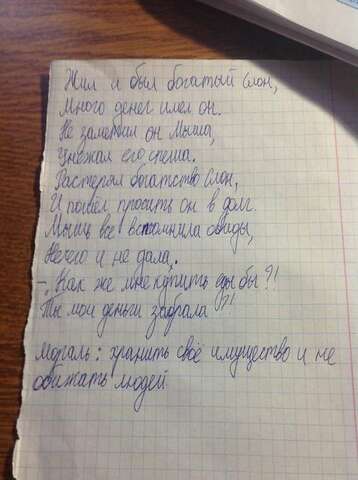 Жил и был богатый слон,
Много денег имел он.
Не заметил он Мыша,
Унежал его спеша.
Растерял богатство слон,
И пошёл просить он в долг.
Мышь всё вспомнила обиды,
Нечего и не дала.
- Как же мне купить еды бы?!
Ты мои деньги забрала?!
Мораль: хранить своё имущество и не
обижать людей